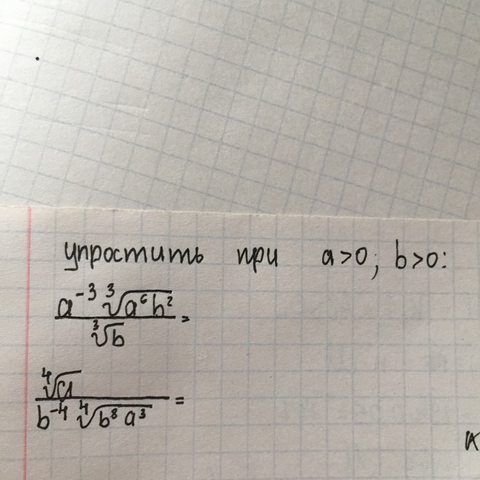 упростить при a>0; b>0:
a⁻³ ∛(a⁶b²) / ∛b =
⁴√a / b⁻⁴ ⁴√(b⁸a³) =
к